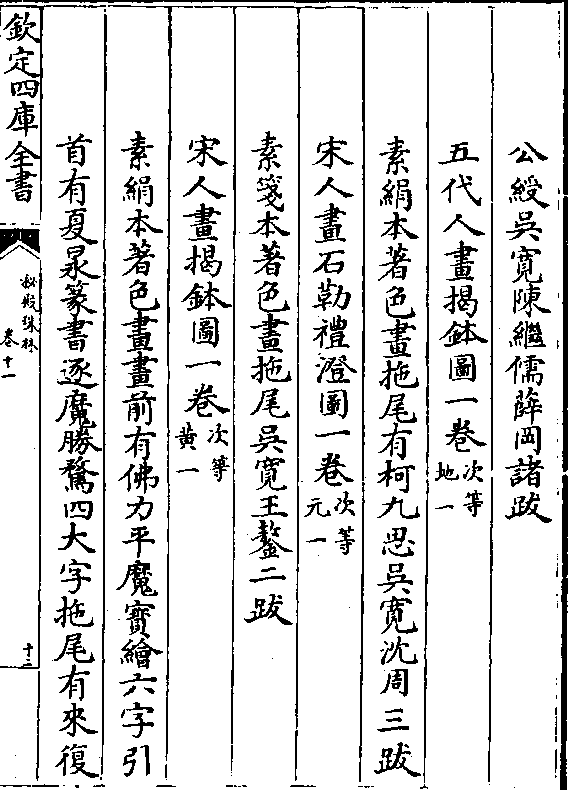 公綬吳寛陳繼儒薛岡諸跋
五代人畫揭鉢圖一卷次等地一
素絹本著色畫拖尾有柯九思吳寛沈周三跋
宋人畫石勒禮澄圖一卷次等元一
素箋本著色畫拖尾吳寛王鏊二跋
宋人畫揭鉢圖一卷次等黄一
素絹本著色畫畫前有佛力平魔寳繪六字引
首有夏㫤篆書逐魔勝騖四大字拖尾有來復
欽定四庫全書
秘殿珠林
卷十一
十二